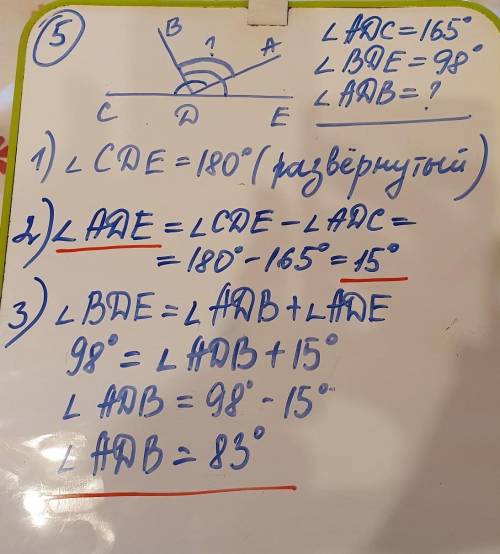 5
B
?
A
C
D
E
∠ADC = 165°
∠BDE = 98°
∠ADB = ?
1) ∠CDE = 180° (развёрнутый)
2) ∠ADE = ∠CDE - ∠ADC =
= 180° - 165° = 15°
3) ∠BDE = ∠ADB + ∠ADE
98° = ∠ADB + 15°
∠ADB = 98° - 15°
∠ADB = 83°